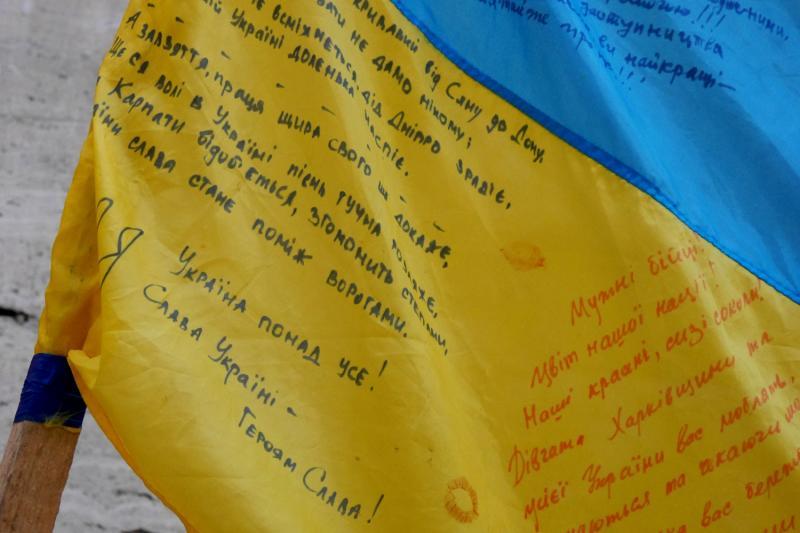 кривавий від Сяну до Дону,
не дамо нікому;
всміхнеться дід Дніпро зрадіє,
Україні доленька наспіє.
А завзяття, праця щира свого ще докаже,
Ще ся волі в Україні піснь гучна розляже,
Карпати відіб'ється, згомонить степами,
слава стане поміж ворогами.
Україна понад усе!
Слава Україні –
Героям Слава!
заступництва
найкращі –
Мужні бійці!
Цвіт нашої нації!
Наші країні, сизі соколи!
Дівчата Харківщини та
усієї України вас люблять,
та чекаючи
вас